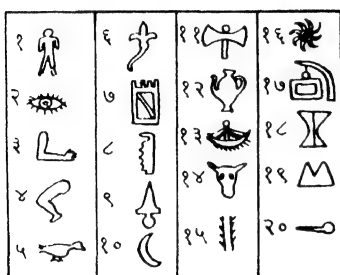 १
२
३
४
५
६
७
८
९
१०
११
१२
१३
१४
१५
१६
१७
१८
१९
२०